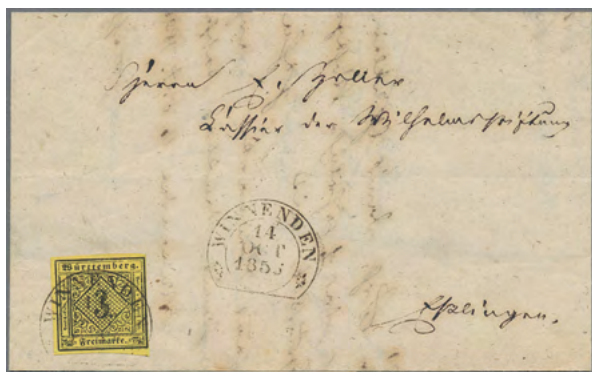 Herrn F. Zeller
Cassier der Wilhelmsstiftung
WINNENDEN
14
OCT
185
Württemberg.
WINNENDEN
3
Freimarke.
Esslingen.